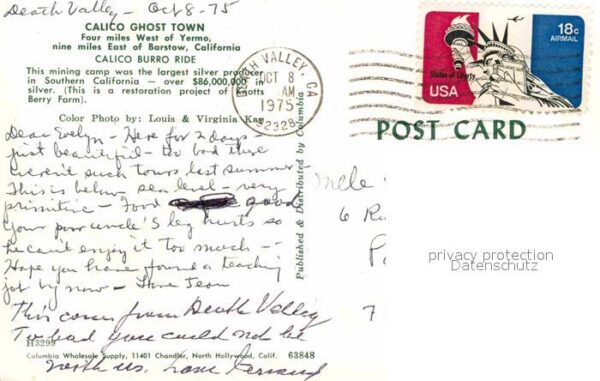 Death Valley - Oct 8-75
CALICO GHOST TOWN
Four miles West of Yermo,
nine miles East of Barstow, California
CALICO BURRO RIDE
This mining camp was the largest silver producer
in Southern California — over $86,000,000 in
silver. (This is a restoration project of Knotts
Berry Farm).
Color Photo by: Louis & Virginia Kay
DEATH VALLEY, CA
OCT 8
AM
1975
92328
18c
AIRMAIL
Statue of Liberty
USA
POST CARD
Dear Evelyn - Here for 2 days -
just beautiful - too bad there
weren't such tours last summer
This is below sea level - very
primitive - Food good
Your poor uncle's leg hurts so
he can't enjoy it too much -
Hope you have found a teaching
job by now - Love Jean
This comes from Death Valley
To bad you could not be
with us. Love
Published & Distributed by Columbia
Mlle
6 R
P
7
privacy protection
Datenschutz
H3299
Columbia Wholesale Supply, 11401 Chandler, North Hollywood, Calif. 63848